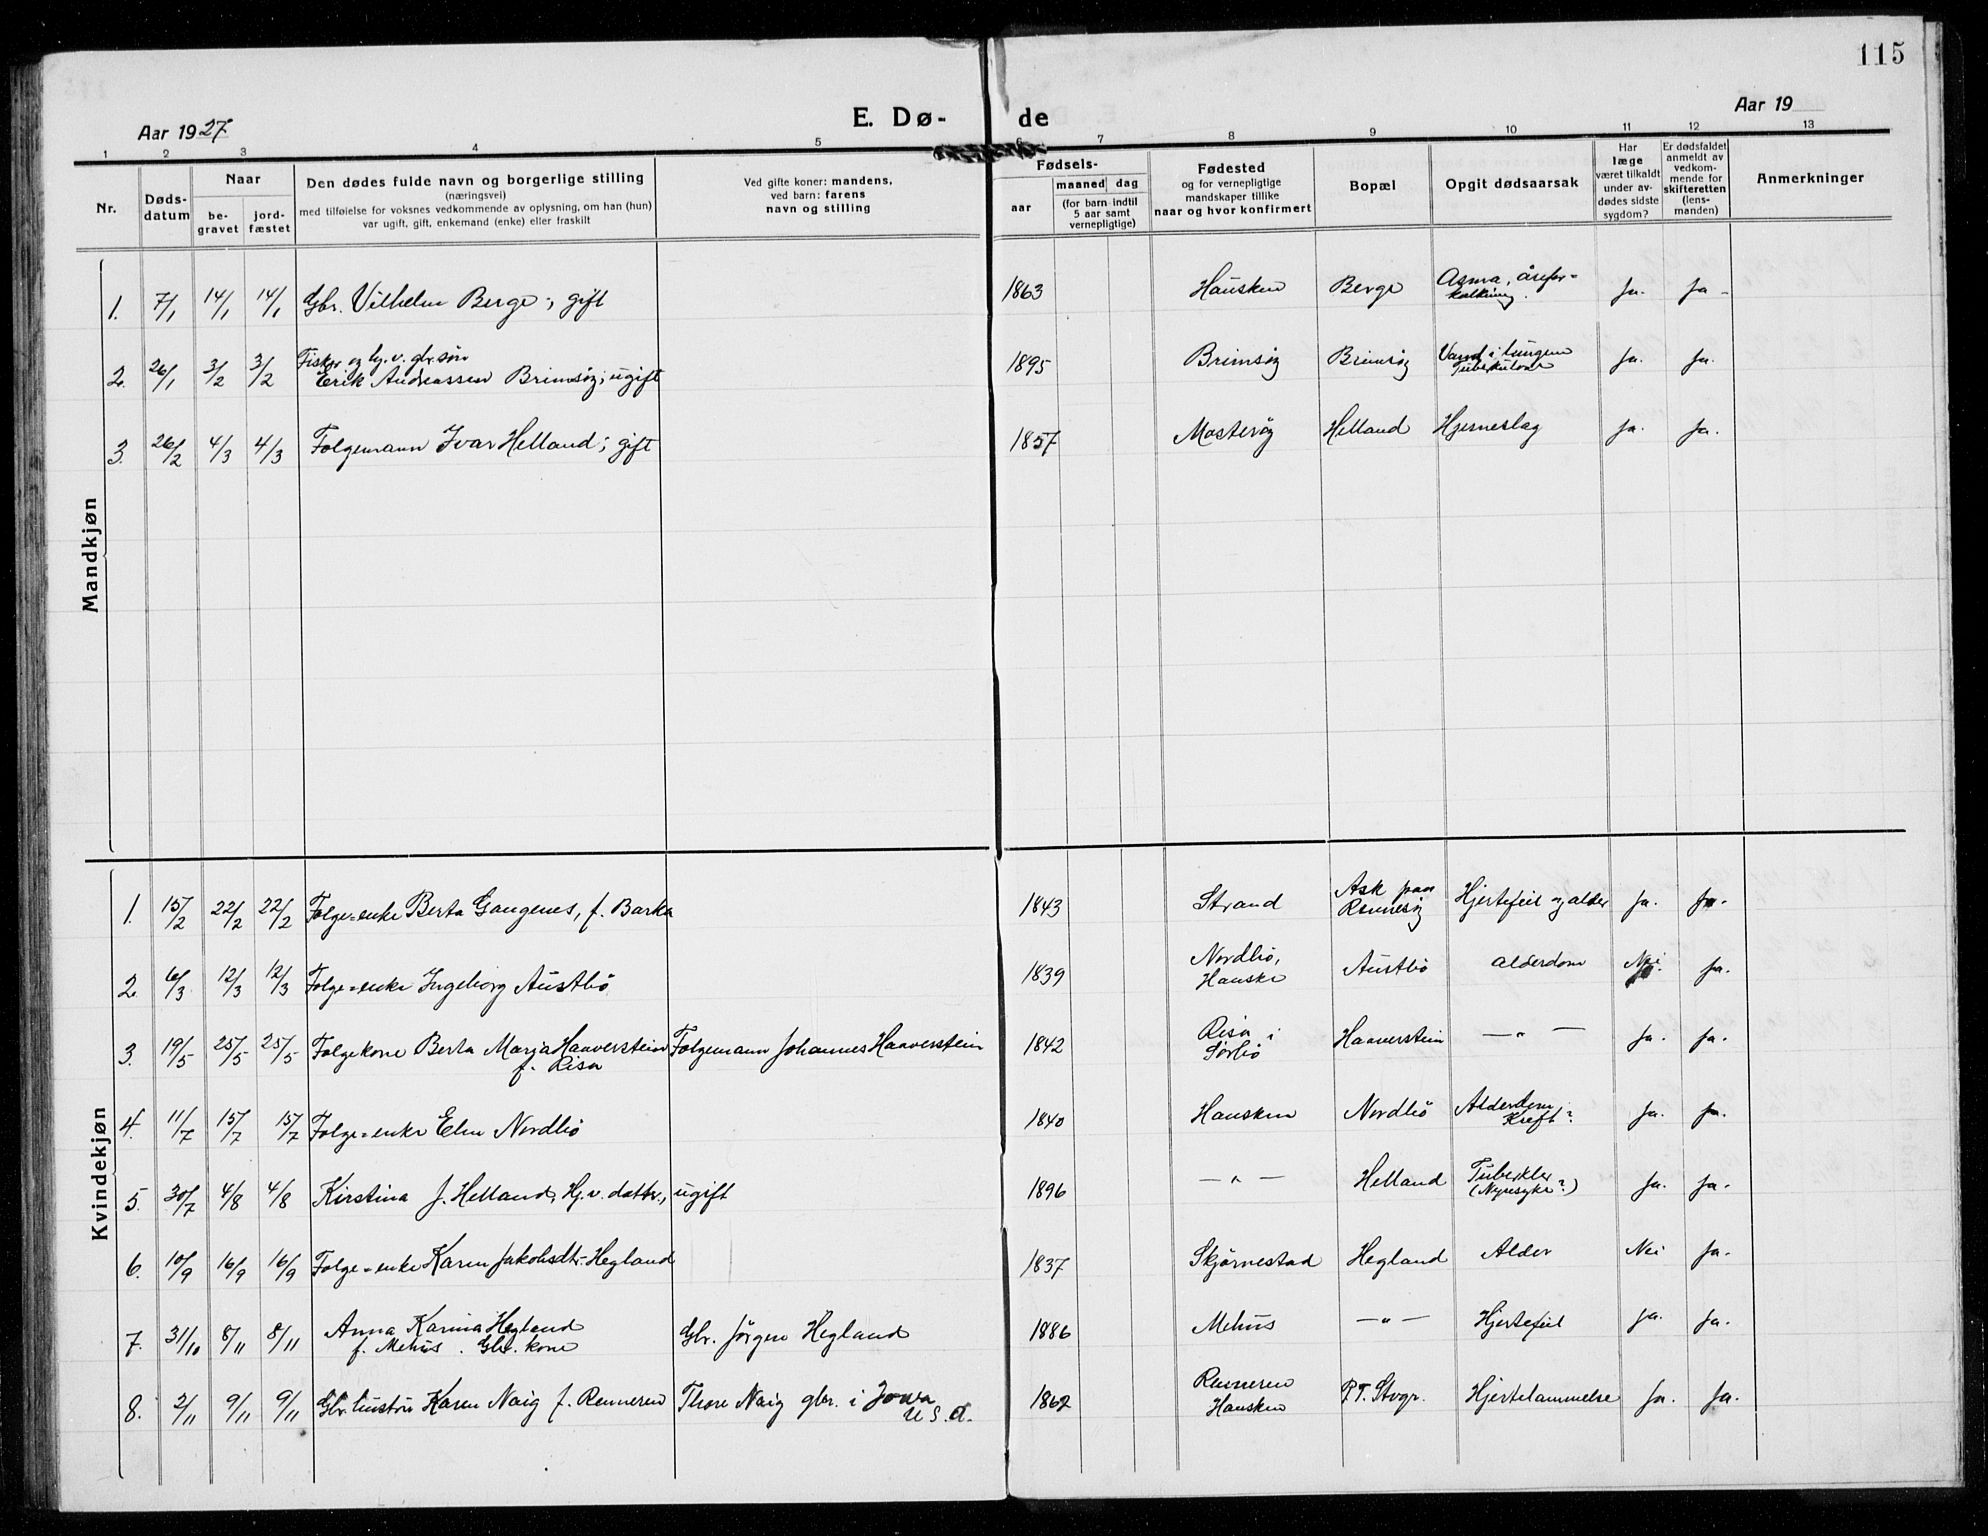 115
Aar 1927
E. Dø-
de
Aar 19
1 2 3 4 5 6 7 8 9 10 11 12 13
Nr.
Døds-
datum
Naar
be-
gravet
jord-
fæstet
Den dødes fulde navn og borgerlige stilling
(næringsvei)
med tilføielse for voksnes vedkommende av oplysning, om han (hun)
var ugift, gift, enkemand (enke) eller fraskilt
Ved gifte koner: mandens,
ved barn: farens
navn og stilling
Fødsels-
aar
maaned dag
(for barn indtil
5 aar samt
vernepligtige)
Fødested
og for vernepligtige
mandskaper tillike
naar og hvor konfirmert
Bopæl
Opgit dødsaarsak
Har
læge
været tilkaldt
under av-
dødes sidste
sygdom?
Er dødsfaldet
anmeldt av
vedkom-
mende for
skifteretten
(lens-
manden)
Anmerkninger
Mandkjøn
1. 7/1 14/1 14/1 Gbr. Vilhelm Berge; gift 1863 Hausken Berge Asma, årefor-
kalkning. Ja. Ja -
Fisker og hj. v. gbr. søn
2. 26/1 3/2 3/2 Erik Andreassen Brimsøy; ugift 1895 Brimsöy Brimsöy Vand i lungene
Tuberkulose Ja. Ja.
3. 26/2 4/3 4/3 Folgemann Ivar Helland; gift 1857 Mosteröy Helland Hjerneslag Ja. Ja.
Kvindekjøn
1. 15/2 22/2 22/2 Folge-enke Berta Gangenes, f. Barka 1843 Strand Ask paa
Rennesöy Hjertefeil og alder Ja. Ja.
2. 6/3 12/3 12/3 Folge-enke Ingeborg Austbö 1839 Nordbö,
Hauske Austbö Alderdom Nei. Ja.
3. 19/5 25/5 25/5 Folgekone Berta Marja Haaverstein
f. Risa Folgemann Johannes Haaverstein 1842 Risa i
Sørbö Haaverstein — " — Ja. Ja.
4. 11/7 15/7 15/7 Folge-enke Elen Nordbö 1840 Hausken Nordbö Alderdom
Kreft? Ja. Ja.
5. 30/7 4/8 4/8 Kirstina J. Helland, Hj. v. datter, ugift 1896 — " — Helland Tuberkler
(Nyresyke?) Ja. Ja.
6. 10/9 16/9 16/9 Folge-enke Karen Jakobsdtr. Hegland 1837 Skjørnestad Hegland Alder Nei Ja.
7. 31/10 8/11 8/11 Anna Karina Hegland
f. Mehus. Gbr. kone Gbr. Jörgen Hegland 1886 Mehus — " — Hjertefeil Ja. Ja.
8. 2/11 9/11 9/11 Gbr. hustru Karen Naig f. Renneren Thore Naig gbr. i Jowa
U. S. A. 1862 Renneren
Hausken P.T. Stvgr. Hjertelammelse Ja. Ja.